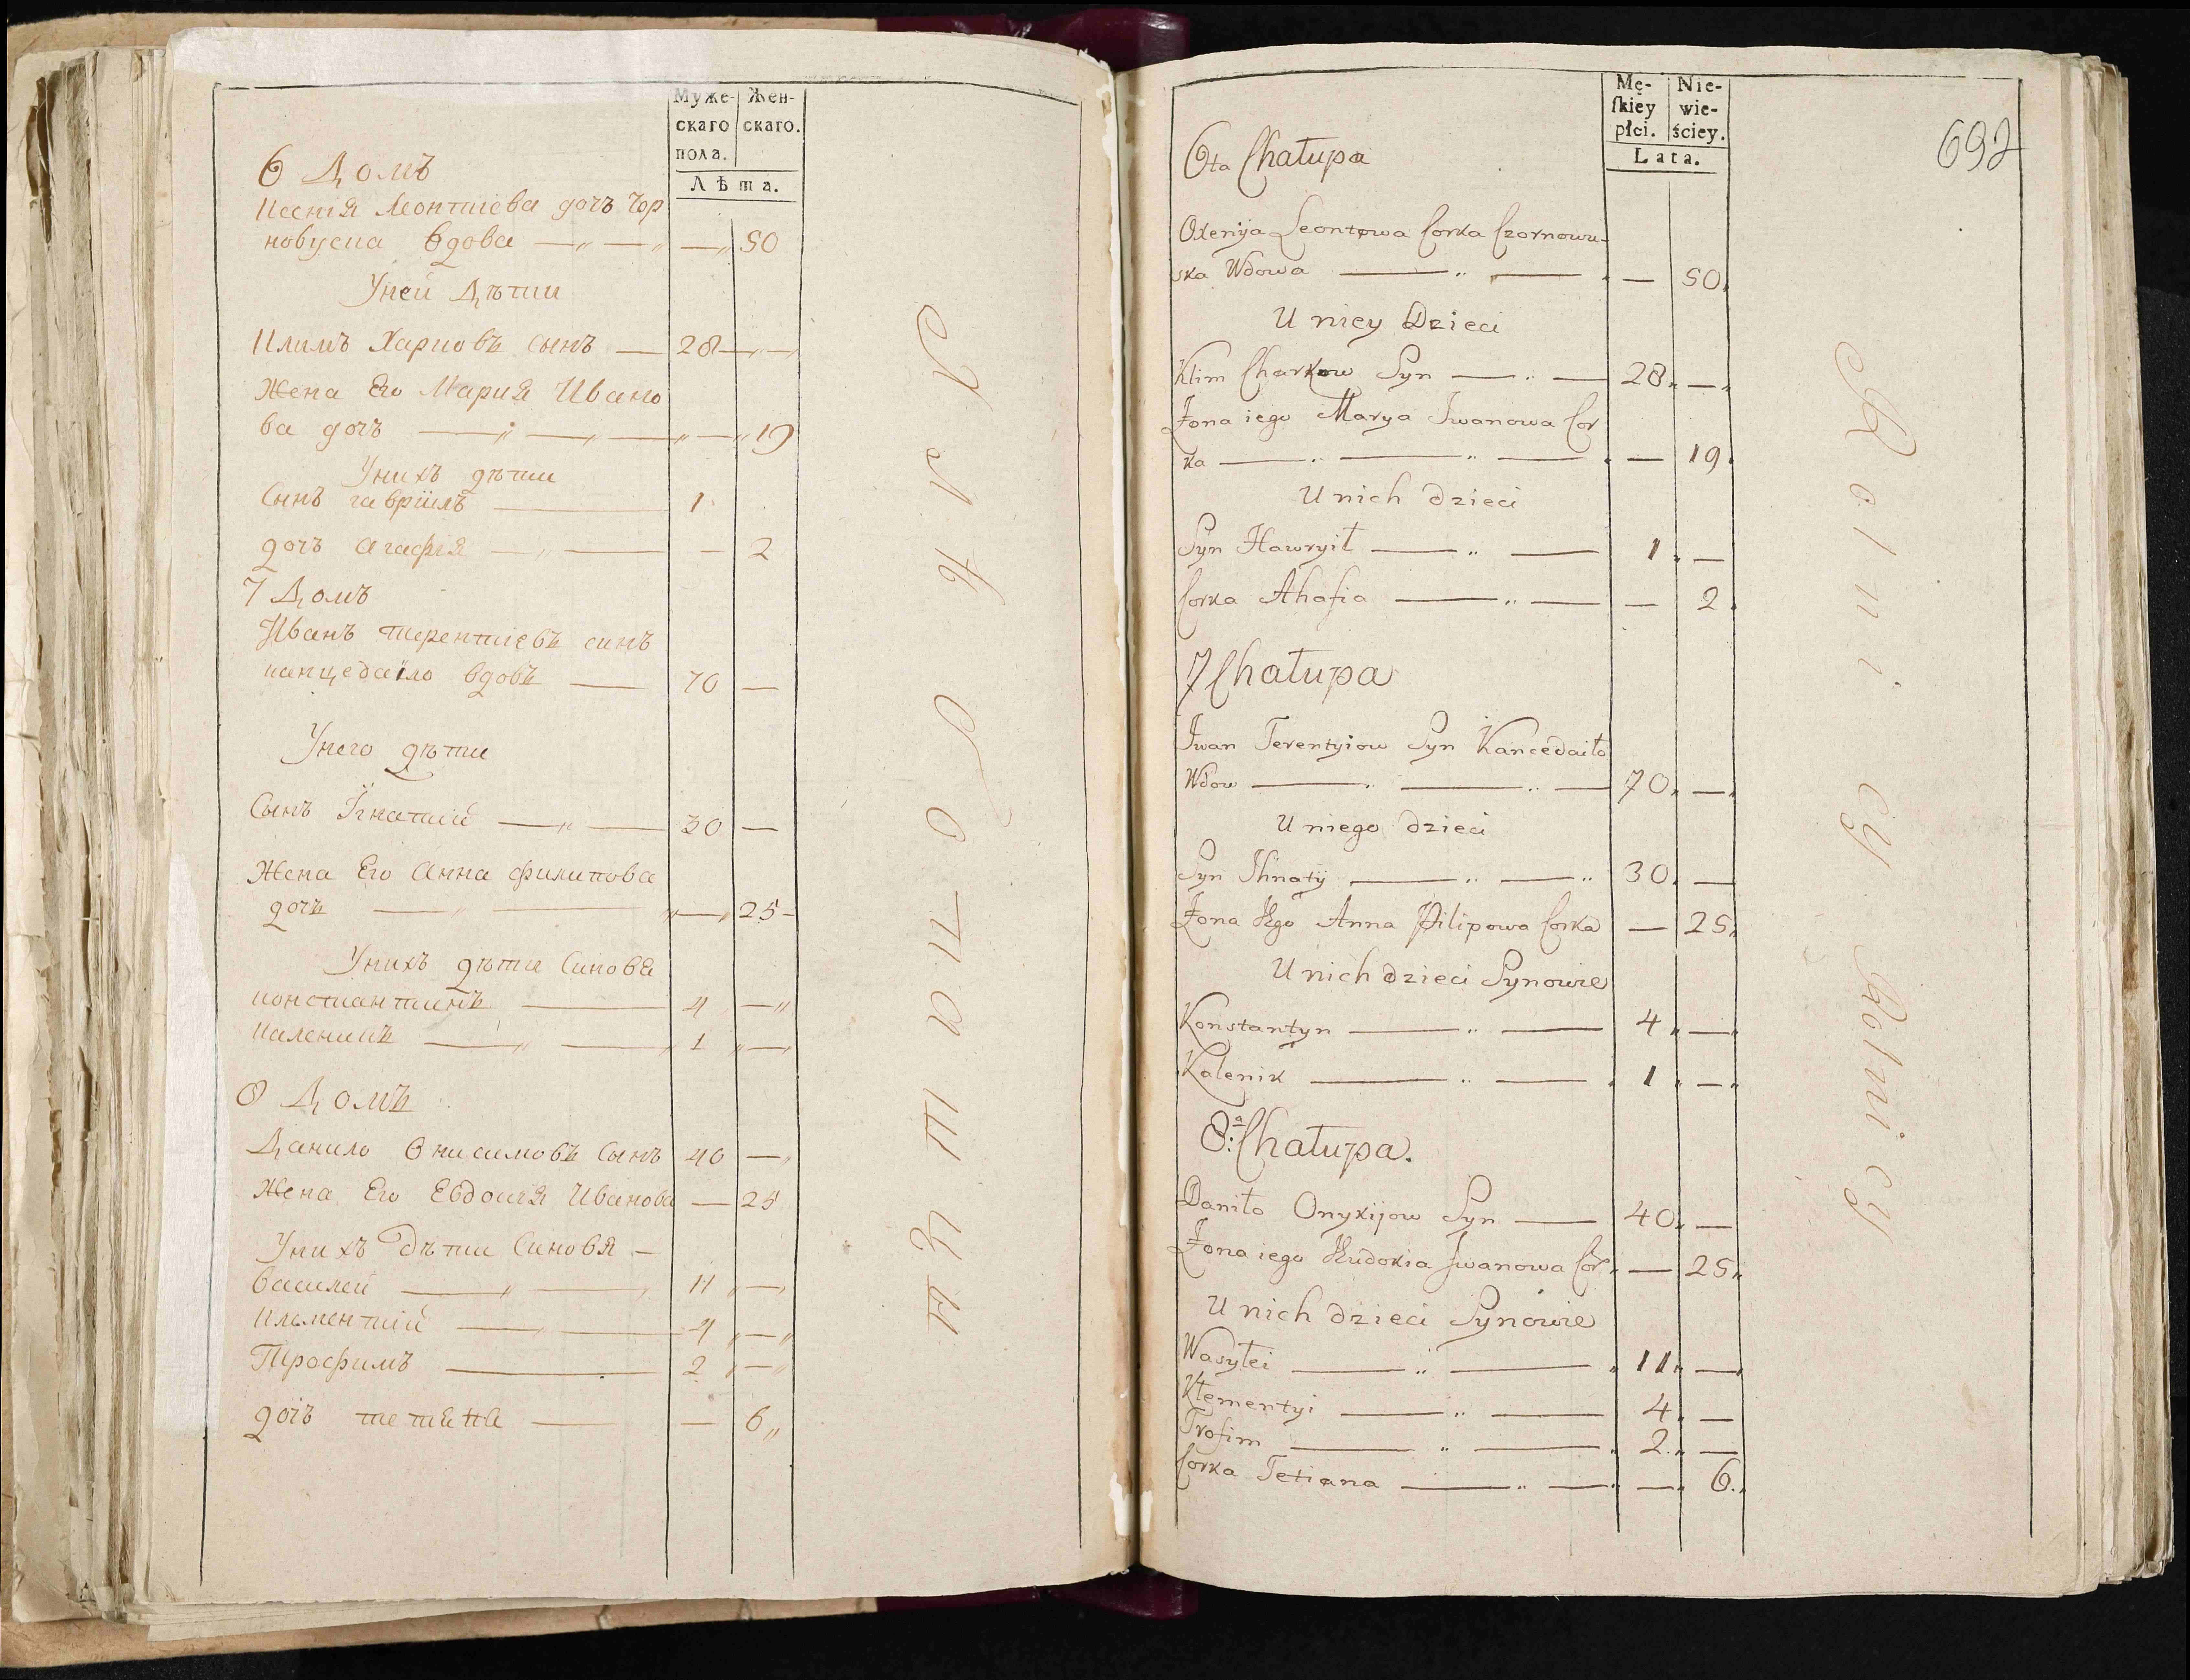 Муже-
скаго
пола.
Жен-
скаго.
Лѣта.
6 Домъ
Ксенія Леонтиева дочъ Чор
новуска вдова — 50
Уней Дѣти
Климъ Харковъ сынъ — 28 —
Жена Его Мария Ивано
ва дочъ — — 19
Унихъ дѣти
Сынъ гавріилъ — 1
дочъ агафія — — 2
7 Домъ
Иванъ терентиевъ синъ
канцедаіло вдовъ — 70 —
Унего дѣти
Сынъ Їгнатий — 30 —
Жена Его Анна филипова
дочъ — — 25
Унихъ дѣти Синовя
константинъ — 4 —
каленикъ — 1 —
8 Домъ
Данило Онисимовъ Сынъ 40 —
Жена Его Евдокія Иванова — 25
Унихъ дѣти Синовя —
василей — 11 —
клементий — 4 —
Трофимъ — 2 —
дочъ тетяна — — 6
Mę-
skiey
płci.
Nie-
wie-
ściey.
Lata.
692
6ta Chałupa
Oxenija Leontowa Corka Czornowu-
ska Wdowa — — 50
U niey Dzieci
Klim Charkow Syn — 28 —
Żona iego Marya Iwanowa Cor
ka — — 19
U nich dzieci
Syn Hawryił — 1 —
Corka Ahafia — — 2
7 Chałupa
Iwan Terentyiow Syn Kancedaiło
Wdow — 70 —
U niego dzieci
Syn Ihnatij — 30 —
Żona Jego Anna Pilipowa Corka — 25
U nich dzieci Synowie
Konstantyn — 4 —
Kalenik — 1 —
8a Chałupa.
Daniło Onyxijow Syn — 40 —
Żona iego Eudokia Iwanowa Cor — 25
U nich dzieci Synowie
Wasyłei — 11 —
Kłementyi — 4 —
Trofim — 2 —
Corka Tetiana — — 6
Rolnicy Rolnicy